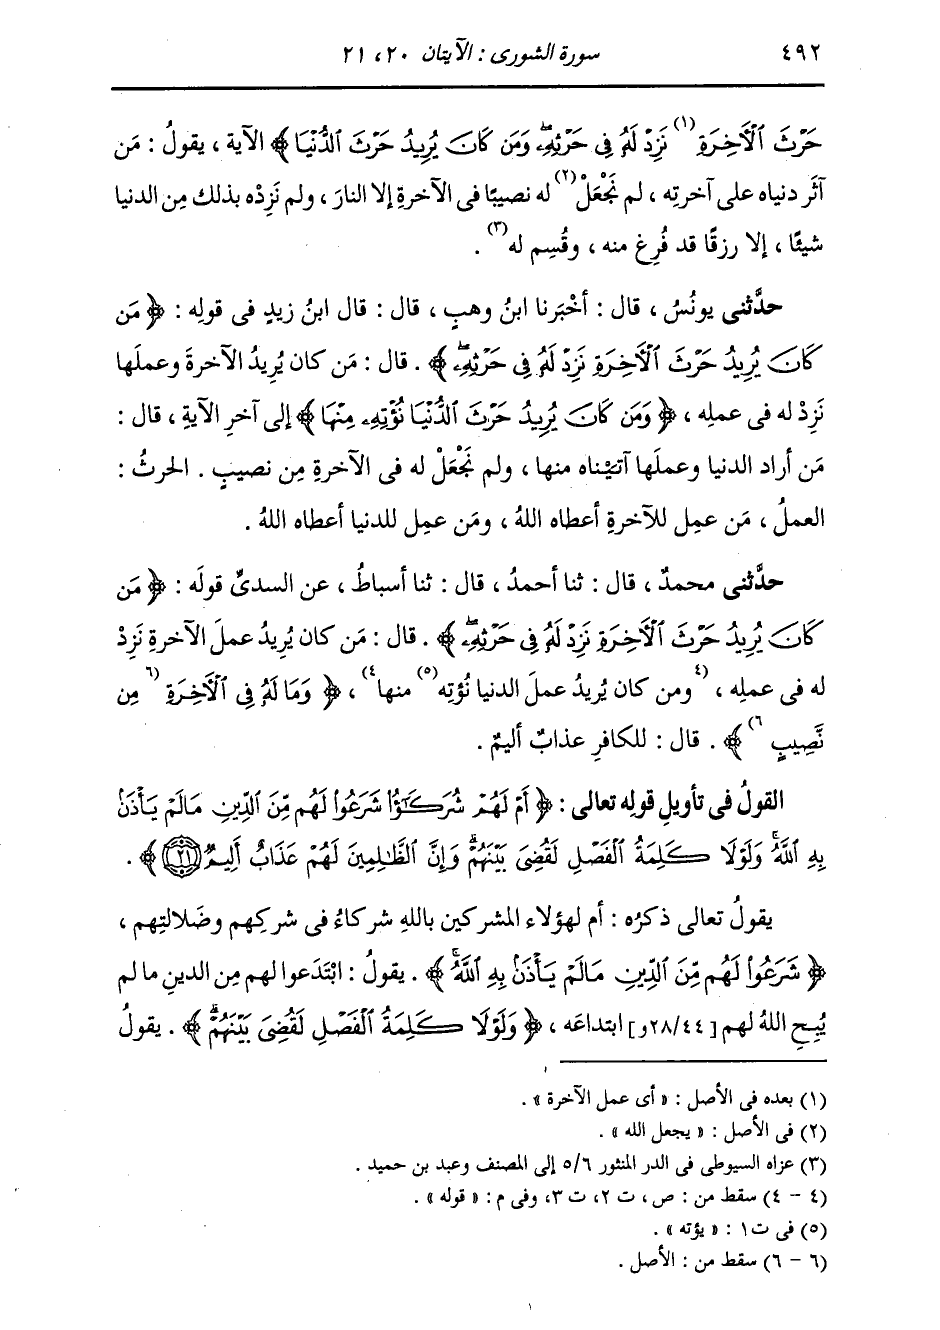 ٤٩٢ سورة الشورى : الآيتان ٢٠، ٢١
حَرْثَ ٱلْأَخِرَةِ(١) نَزِدْ لَهُۥ فِى حَرْثِهِۦۖ وَمَن كَانَ يُرِيدُ حَرْثَ ٱلدُّنْيَا ﴾ الآية ، يقولُ : مَن
آثَر دنياه على آخرتِه ، لم نَجْعَلْ(٢) له نصيبًا فى الآخرةِ إلا النارَ ، ولم نَزِدْه بذلك مِن الدنيا
شيئًا ، إلا رزقًا قد فُرِغ منه ، وقُسِم له(٣) .
حدَّثنى يونُسُ ، قال : أخْبَرنا ابنُ وهبٍ ، قال : قال ابنُ زيدٍ فى قولِه : ﴿ مَن
كَانَ يُرِيدُ حَرْثَ ٱلْأَخِرَةِ نَزِدْ لَهُۥ فِى حَرْثِهِۦۖ ﴾ . قال : مَن كان يُرِيدُ الآخرةَ وعملَها
نَزِدْ له فى عملِه ، ﴿ وَمَن كَانَ يُرِيدُ حَرْثَ ٱلدُّنْيَا نُؤْتِهِۦ مِنْهَا ﴾ إلى آخرِ الآيةِ ، قال :
مَن أراد الدنيا وعملَها آتيْناه منها ، ولم نَجْعَلْ له فى الآخرةِ مِن نصيبٍ . الحرثُ :
العملُ ، مَن عمِل للآخرةِ أعطاه اللهُ ، ومَن عمِل للدنيا أعطاه اللهُ .
حدَّثنى محمدٌ ، قال : ثنا أحمدُ ، قال : ثنا أسباطُ ، عن السدىِّ قولَه : ﴿ مَن
كَانَ يُرِيدُ حَرْثَ ٱلْأَخِرَةِ نَزِدْ لَهُۥ فِى حَرْثِهِۦۖ ﴾ . قال : مَن كان يُرِيدُ عملَ الآخرةِ نَزِدْ
له فى عملِه ، (٤ ومن كان يُريدُ عملَ الدنيا نُؤْتِه(٥) منها٤) ، ﴿ وَمَا لَهُۥ فِى ٱلْأَخِرَةِ (٦ مِن
نَّصِيبٍ ٦) ﴾ . قال : للكافرِ عذابٌ أليمٌ .
القولُ فى تأويلِ قولِه تعالى : ﴿ أَمْ لَهُمْ شُرَكَٰٓؤُا۟ شَرَعُوا۟ لَهُم مِّنَ ٱلدِّينِ مَا لَمْ يَأْذَنۢ
بِهِ ٱللَّهُۚ وَلَوْلَا كَلِمَةُ ٱلْفَصْلِ لَقُضِىَ بَيْنَهُمْۗ وَإِنَّ ٱلظَّٰلِمِينَ لَهُمْ عَذَابٌ أَلِيمٌ ٢١ ﴾ .
يقولُ تعالى ذكرُه : أم لهؤلاء المشركين باللهِ شركاءُ فى شركِهم وضَلالتِهم ،
﴿ شَرَعُوا۟ لَهُم مِّنَ ٱلدِّينِ مَا لَمْ يَأْذَنۢ بِهِ ٱللَّهُۚ ﴾ . يقولُ : ابْتَدَعوا لهم مِن الدينِ ما لم
يُبِحِ اللهُ لهم [٢٨/٤٤و] ابتداعَه ، ﴿ وَلَوْلَا كَلِمَةُ ٱلْفَصْلِ لَقُضِىَ بَيْنَهُمْۗ ﴾ . يقولُ
(١) بعده فى الأصل : « أى عمل الآخرة » .
(٢) فى الأصل : « يجعل الله » .
(٣) عزاه السيوطى فى الدر المنثور ٥/٦ إلى المصنف وعبد بن حميد .
(٤ - ٤) سقط من : ص ، ت ٢، ت ٣، وفى م : « قوله » .
(٥) فى ت١ : « يؤته » .
(٦ - ٦) سقط من : الأصل .